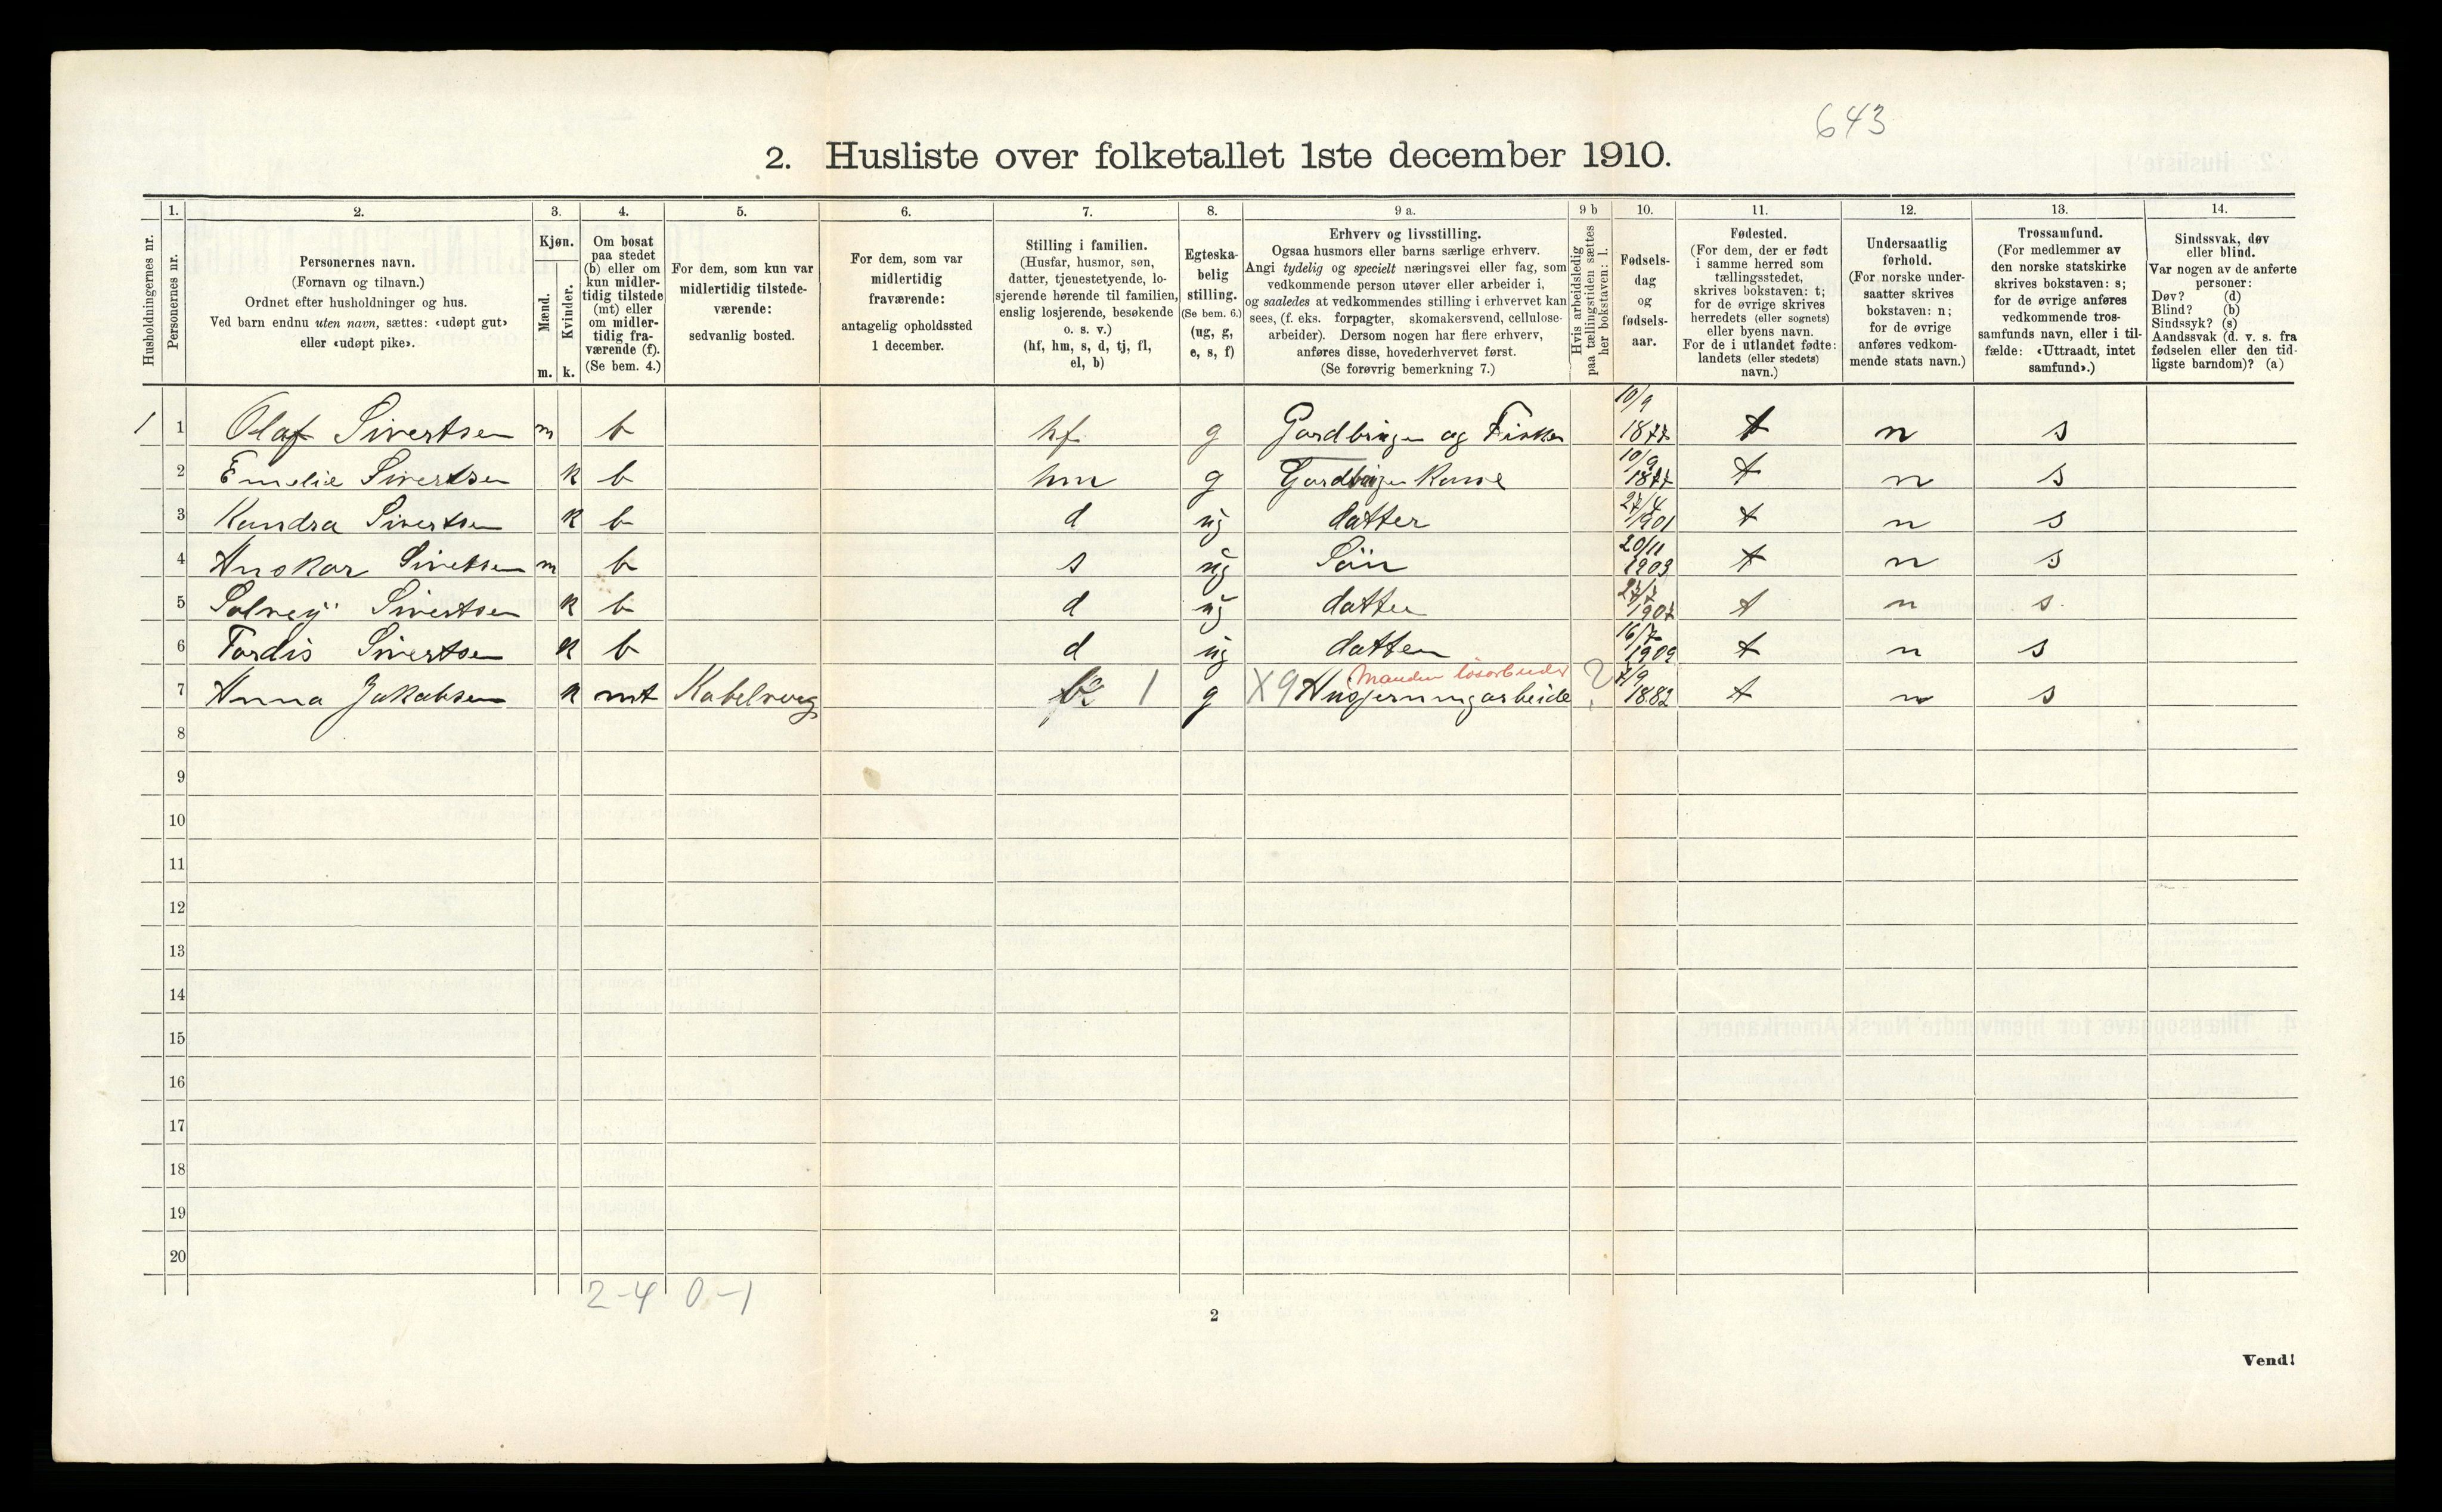 643
2. Husliste over folketallet 1ste december 1910.
Husholdningernes nr.
1.
Personernes nr.
2.
Personernes navn.
(Fornavn og tilnavn.)
Ordnet efter husholdninger og hus.
Ved barn endnu uten navn, sættes: «udøpt gut»
eller «udøpt pike».
3.
Kjøn.
Mænd.
Kvinder.
m. k.
4.
Om bosat
paa stedet
(b) eller om
kun midler-
tidig tilstede
(mt) eller
om midler-
tidig fra-
værende (f).
(Se bem. 4.)
5.
For dem, som kun var
midlertidig tilstede-
værende:
sedvanlig bosted.
6.
For dem, som var
midlertidig
fraværende:
antagelig opholdssted
1 december.
7.
Stilling i familien.
(Husfar, husmor, søn,
datter, tjenestetyende, lo-
sjerende hørende til familien,
enslig losjerende, besøkende
o. s. v.)
(hf, hm, s, d, tj, fl,
el, b)
8.
Egteska-
belig
stilling.
(Se bem. 6.)
(ug, g,
e, s, f)
9 a.
Erhverv og livsstilling.
Ogsaa husmors eller barns særlige erhverv.
Angi tydelig og specielt næringsvei eller fag, som
vedkommende person utøver eller arbeider i,
og saaledes at vedkommendes stilling i erhvervet kan
sees, (f. eks. forpagter, skomakersvend, cellulose-
arbeider). Dersom nogen har flere erhverv,
anføres disse, hovederhvervet først.
(Se forøvrig bemerkning 7.)
9 b
Hvis arbeidsledig
paa tællingstiden sættes
her bokstaven: l.
10.
Fødsels-
dag
og
fødsels-
aar.
11.
Fødested.
(For dem, der er født
i samme herred som
tællingsstedet,
skrives bokstaven: t;
for de øvrige skrives
herredets (eller sognets)
eller byens navn.
For de i utlandet fødte:
landets (eller stedets)
navn.)
12.
Undersaatlig
forhold.
(For norske under-
saatter skrives
bokstaven: n;
for de øvrige
anføres vedkom-
mende stats navn.)
13.
Trossamfund.
(For medlemmer av
den norske statskirke
skrives bokstaven: s;
for de øvrige anføres
vedkommende tros-
samfunds navn, eller i til-
fælde: «Uttraadt, intet
samfund».)
14.
Sindssvak, døv
eller blind.
Var nogen av de anførte
personer:
Døv? (d)
Blind? (b)
Sindssyk? (s)
Aandssvak (d. v. s. fra
fødselen eller den tid-
ligste barndom)? (a)
1 1 Olaf Sivertsen m b hf g Gardbruger og Fisker 10/9 1877 t n s
2 Emelie Sivertsen k b hm g Gardbruger Kone 10/9 1877 t n s
3 Kandra Sivertsen k b d ug datter 27/4 1901 t n s
4 Anskar Sivetsen m b s ug Sön 20/11 1903 t n s
5 Solveij Sivertsen k b d ug datter 27/7 1907 t n s
6 Tordis Sivertsen k b d ug datter 16/7 1909 t n s
Manden løsarbeider
7 Anna Jakobsen k mt Kabelvaag b 1 g X9 Husjerningarbeide ? 7/9 1882 t n s
8
9
10
11
12
13
14
15
16
17
18
19
20
2-4 0-1
2
Vend!